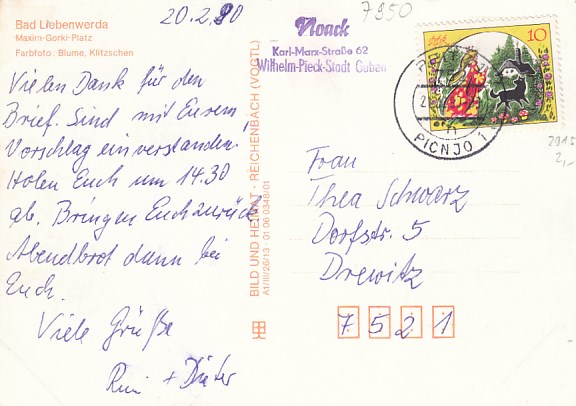 20.2.90
Bad Liebenwerda
Maxim-Gorki-Platz
Farbfoto: Blume, Klitzschen
Vielen Dank für den
Brief. Sind mit Eurem
Vorschlag einverstanden!
Holen Euch um 14.30
ab. Bringen Euch zurück
Abendbrot dann bei
Euch.
Viele Grüße
+ Dieter
BILD UND HEIMAT · REICHENBACH (VOGTL)
A1/III/26/13 01 06 0348/01
Noack
Karl-Marx-Straße 62
Wilhelm-Pieck-Stadt Guben
7950
10
PICNJO 1
2,-
Frau
Thea Schwarz
Dorfstr. 5
Drewitz
7521